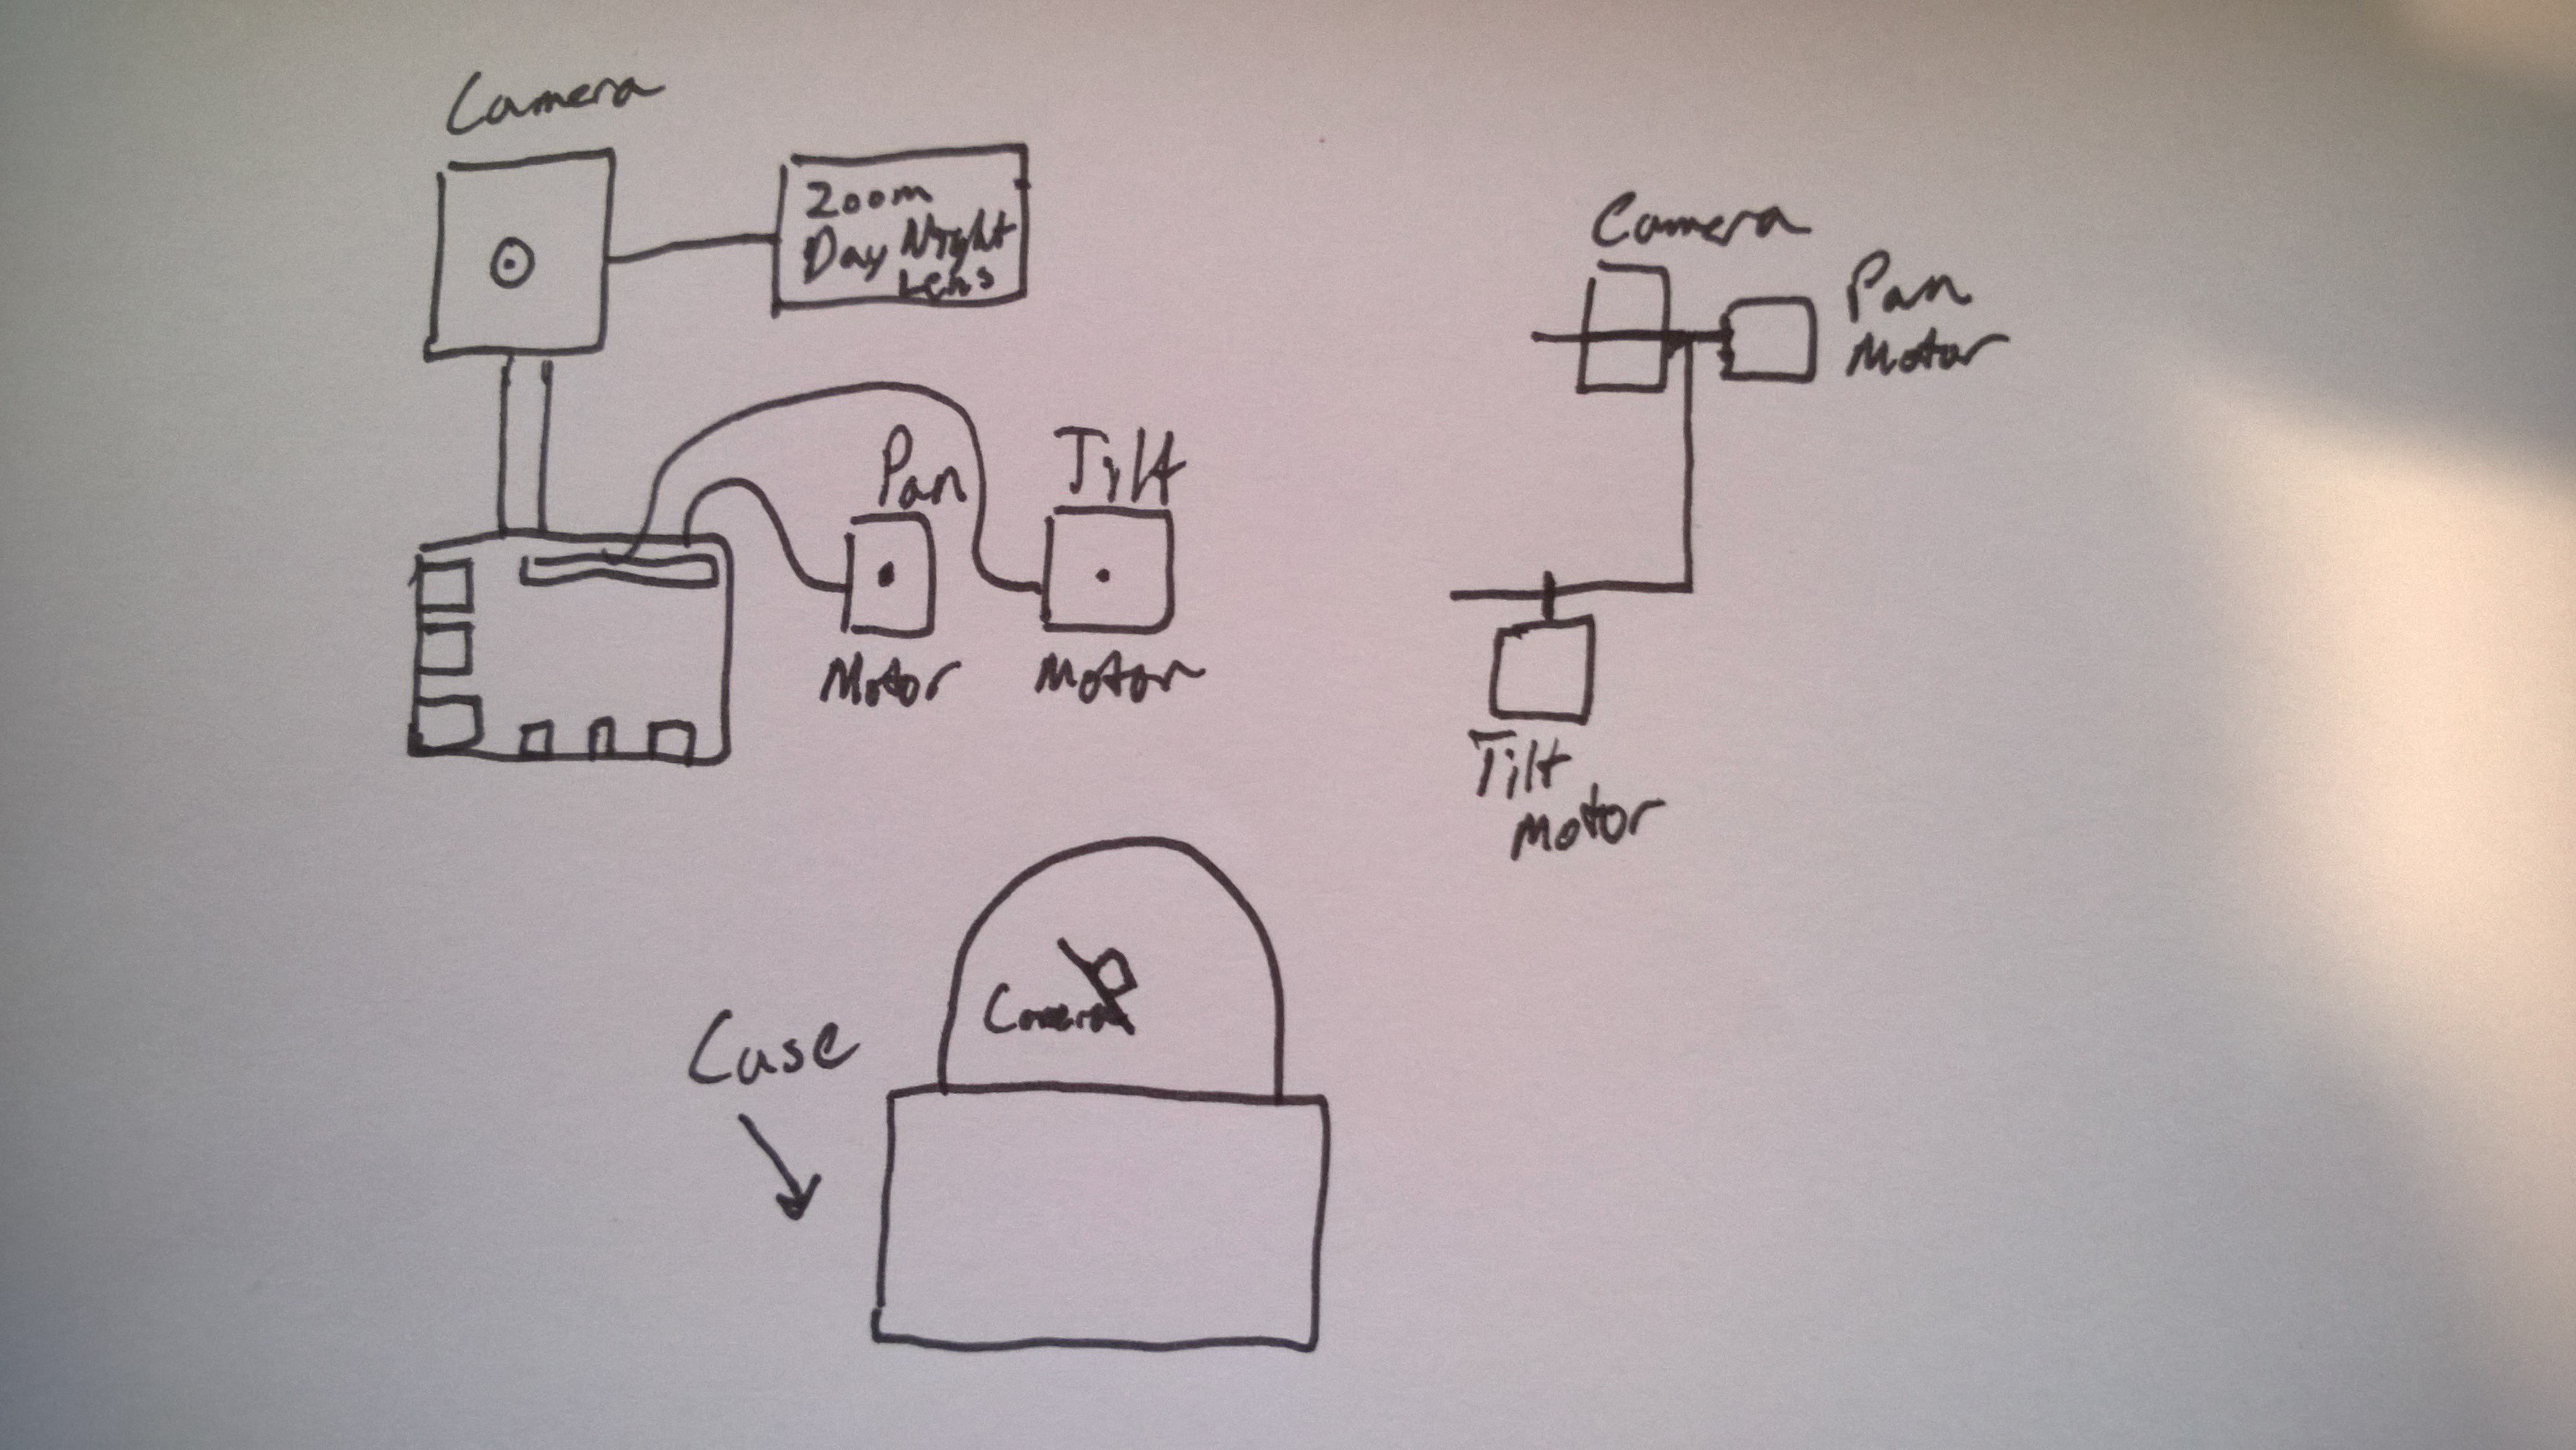 Camera
Zoom
Day Night
Lens
Pan
Motor
Tilt
Motor
Camera
Pan
Motor
Tilt
Motor
Case
Camera